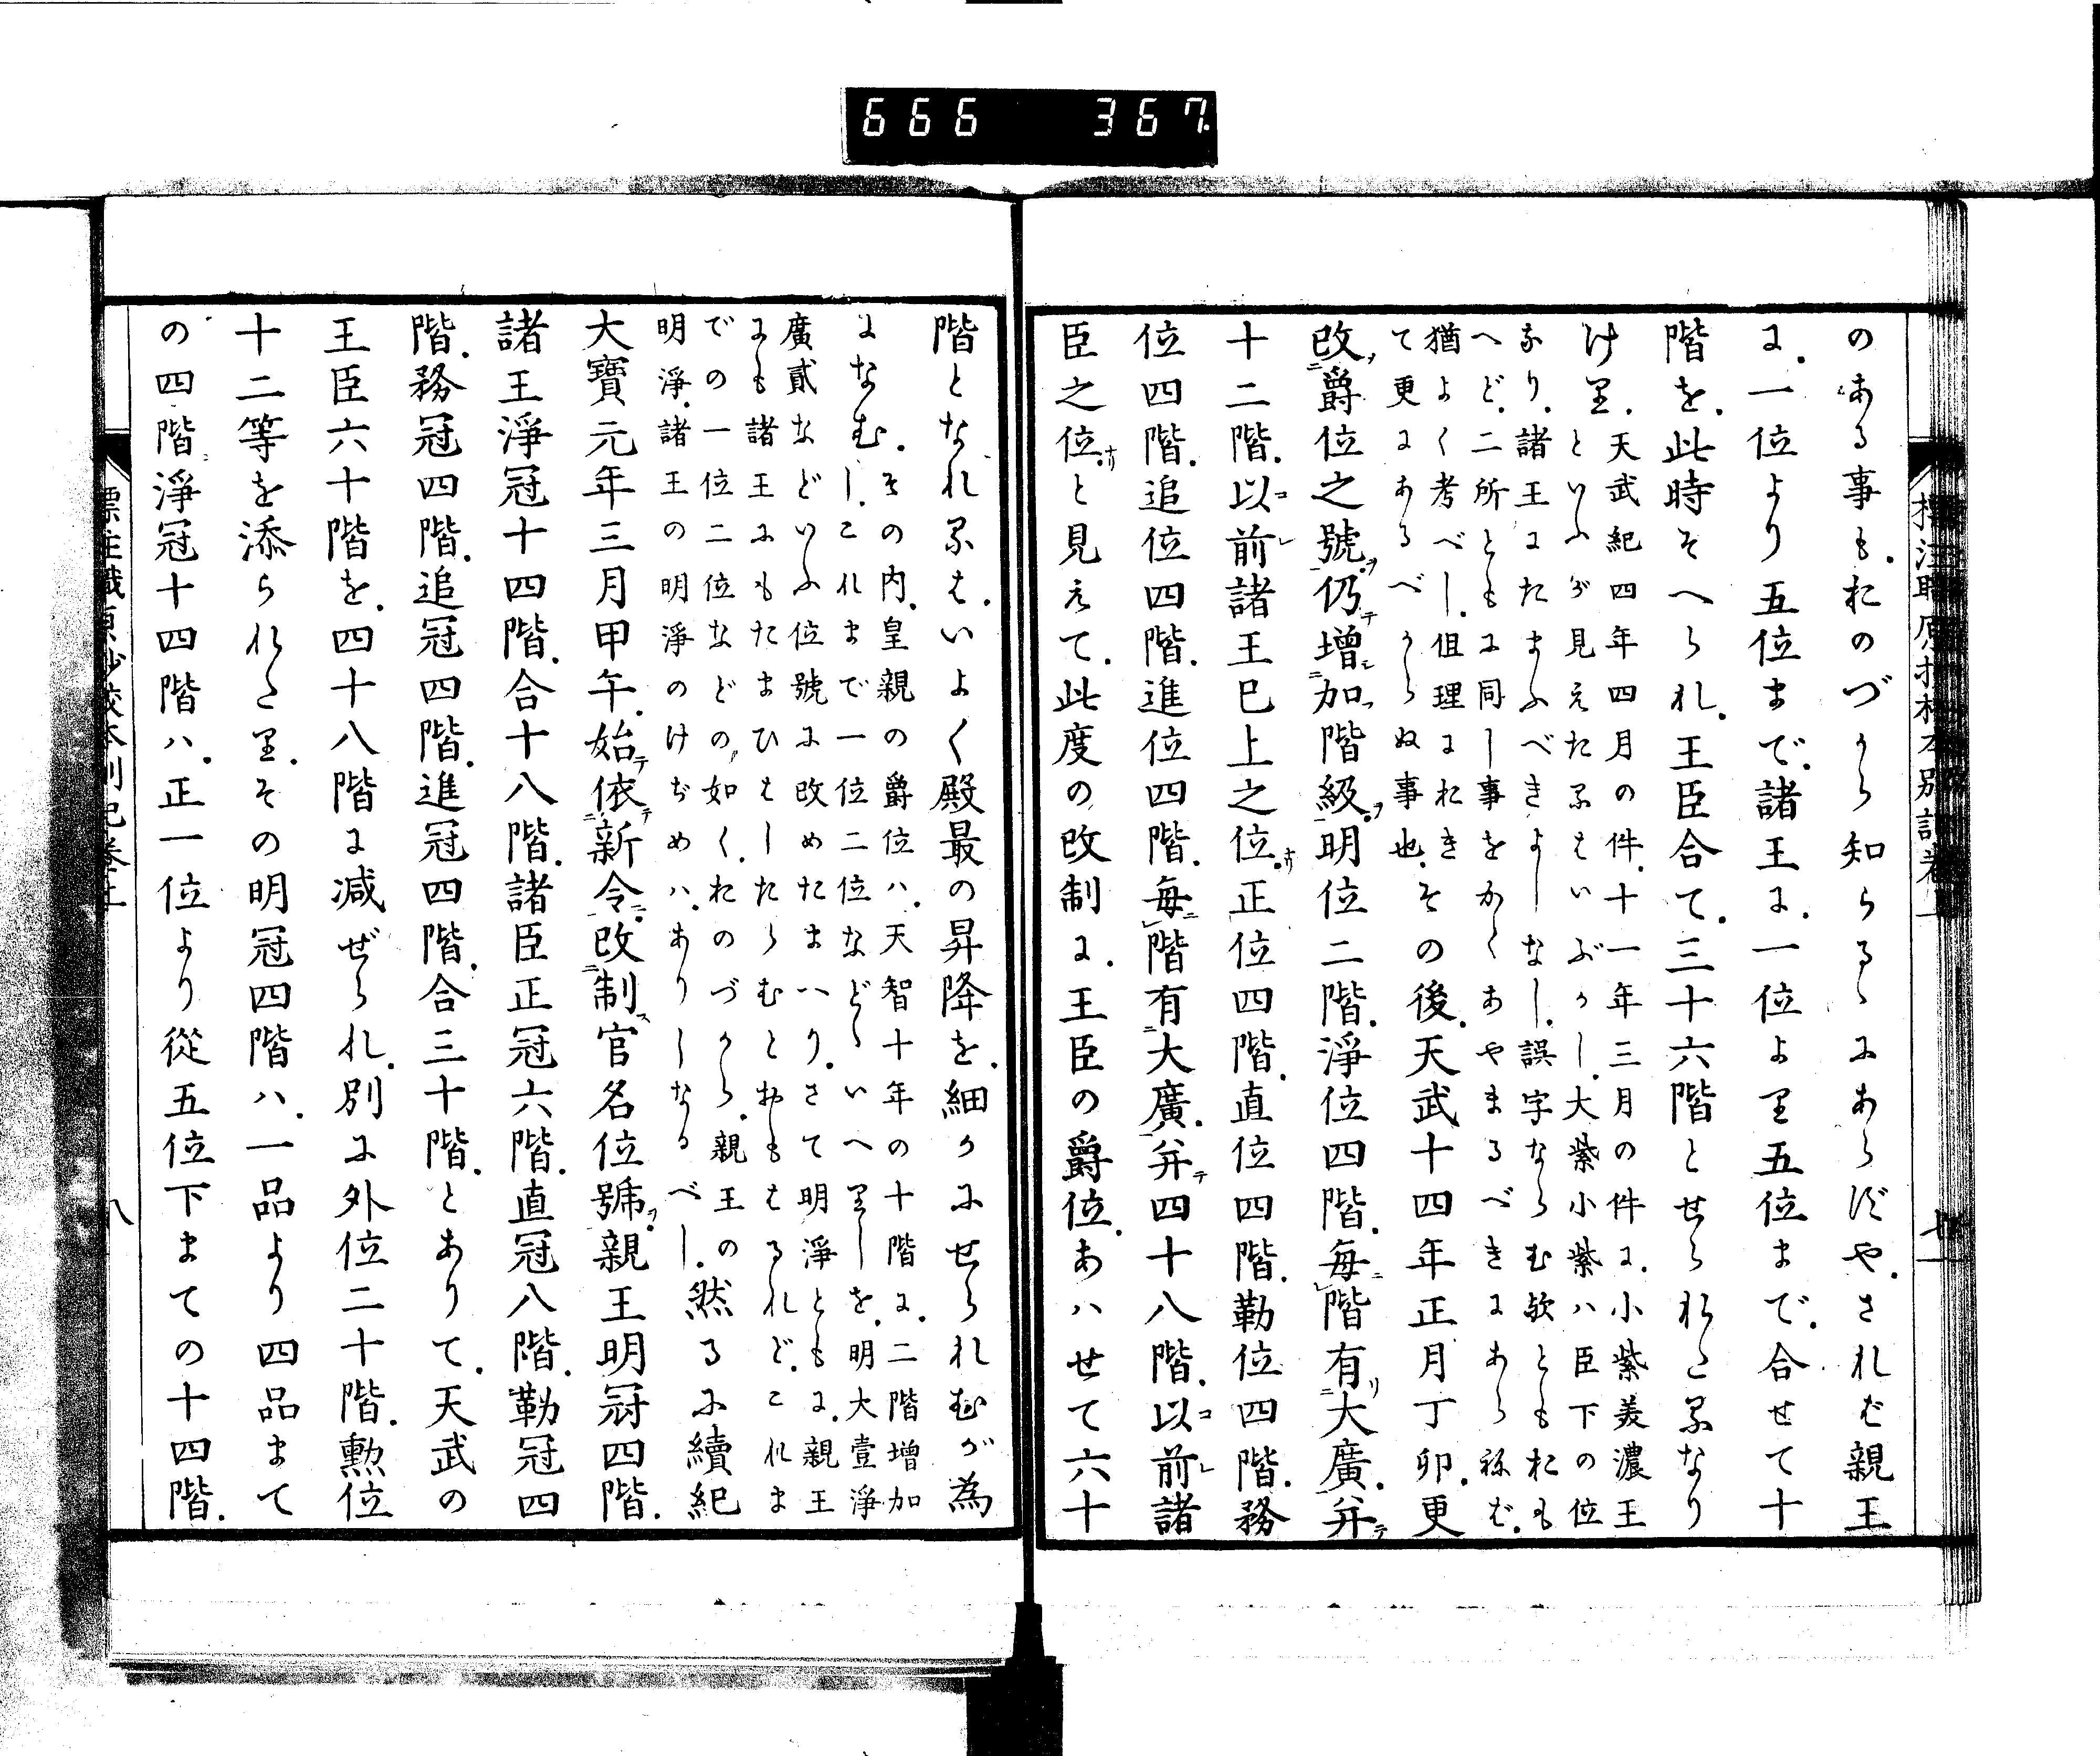 666 367
のある事も.おのづから知らるゝにあらずや.されば親王
に.一位より五位まで.諸王に.一位より五位まで.合せて十
階を.此時そへられ.王臣合て.三十六階とせられしなり
けり.天武紀四年四月の件.十一年三月の件に.小紫美濃王
といふが見えたるはいぶかし.大紫小紫ハ臣下の位
なり.諸王にたまふべきよしなし.誤字ならむ歟ともおも
へど.二所ともに同し事をかくあやまるべきにあらねば.
猶よく考べし.但理におき
て更にあるべからぬ事也.その後.天武十四年正月丁卯.更
改爵位之號.仍增加階級.明位二階.淨位四階.每階有大廣.幷
十二階.以前諸王已上之位.正位四階.直位四階.勤位四階.務
位四階.追位四階.進位四階.每階有大廣.幷四十八階.以前諸
臣之位.と見えて.此度の改制に.王臣の爵位.あハせて六十
階となれるは.いよく殿最の昇降を.細かにせられむが為
になむ.その内.皇親の爵位ハ.天智十年の十階に.二階增加
し.これまで一位二位などゝいへりしを.明大壹淨
廣貳などいふ位號に改めたまハり.さて明淨ともに.親王
にも諸王にもたまひはしたらむとおもはるれど.これま
での一位二位などの如く.おのづから.親王の
明淨.諸王の明淨のけぢめハ.ありしなるべし.然るに續紀
大寶元年三月甲午.始依新令.改制官名位號.親王明冠四階.
諸王淨冠十四階.合十八階.諸臣正冠六階.直冠八階.勤冠四
階.務冠四階.追冠四階.進冠四階.合三十階.とありて.天武の
王臣六十階を.四十八階に減ぜられ.別に外位二十階.勲位
十二等を添られたり.その明冠四階ハ.一品より四品まて
の四階淨冠十四階ハ.正一位より從五位下まての十四階.
八